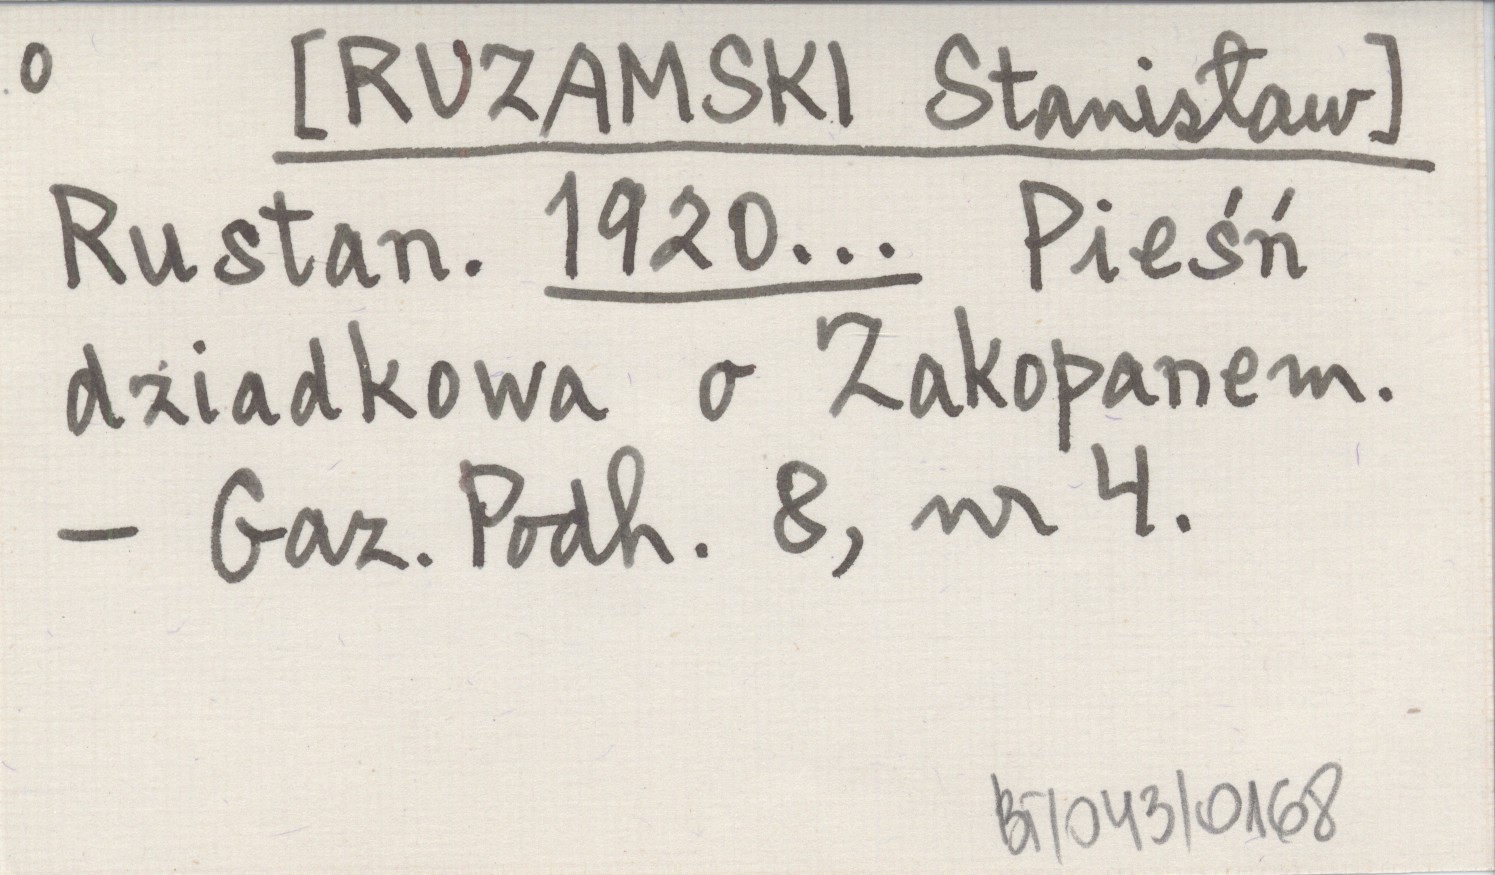 o [RUZAMSKI Stanisław]
Rustan. 1920... Pieśń
dziadkowa o Zakopanem.
— Gaz. Podh. 8, nr 4.
BT/043/0168